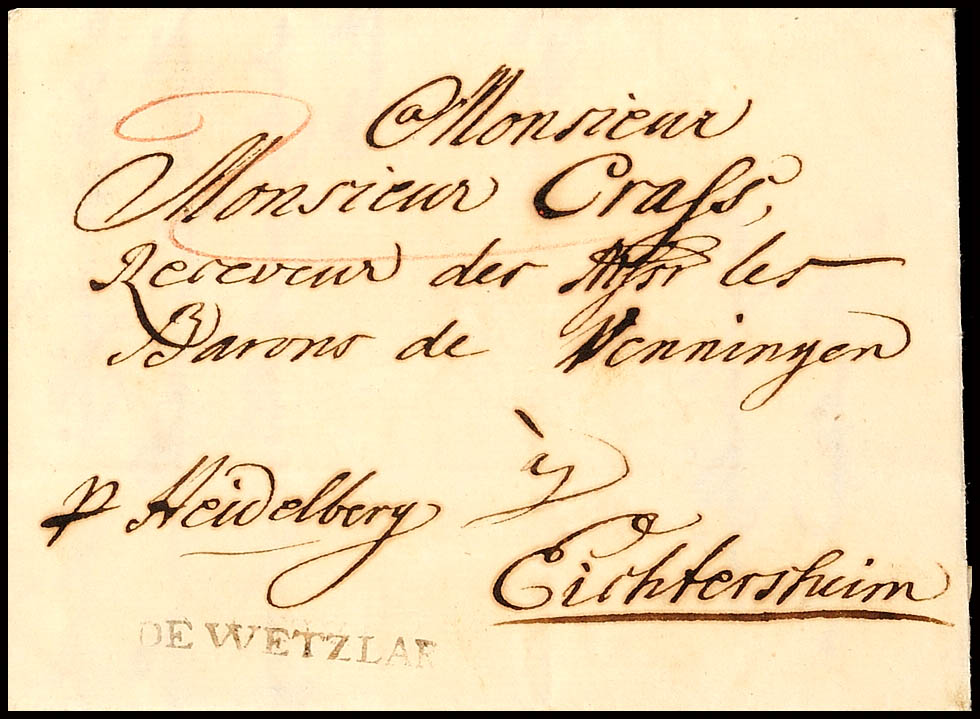 a Monsieur
Monsieur Crass,
Receveur des Mssrs les
Barons de Venningen
à
p Heidelberg
Eichtersheim
DE WETZLAR